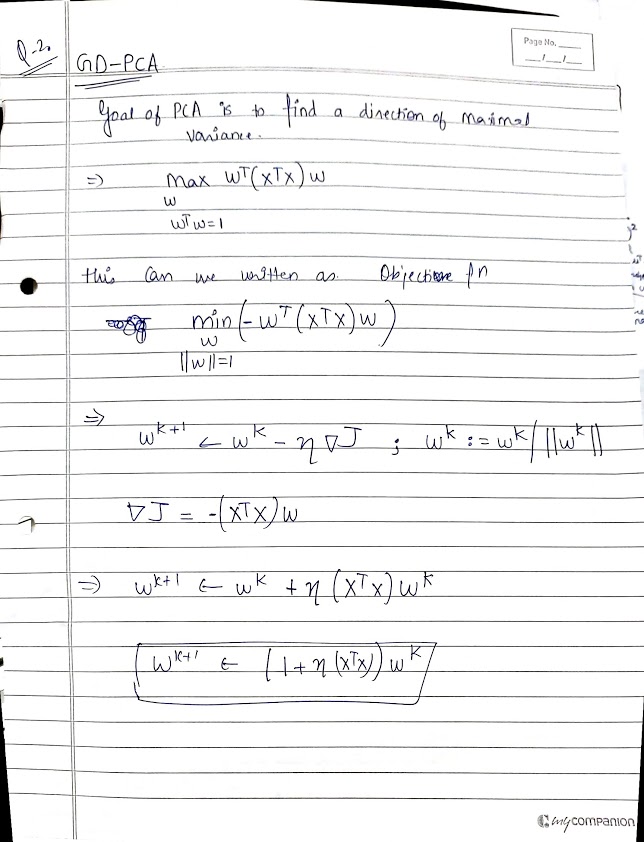 Q-2.
Page No.
GD-PCA
Goal of PCA is to find a direction of maximal
variance.
=> max wᵀ(xᵀx)w
w
wᵀw=1
this can we written as Objective fn
min (-wᵀ(xᵀx)w)
w
||w||=1
=>
wᵏ⁺¹ ← wᵏ - η∇J ; wᵏ := wᵏ/||wᵏ||
∇J = -(xᵀx)w
=> wᵏ⁺¹ ← wᵏ + η(xᵀx)wᵏ
wᵏ⁺¹ ← (1+η(xᵀx))wᵏ
mycompanion